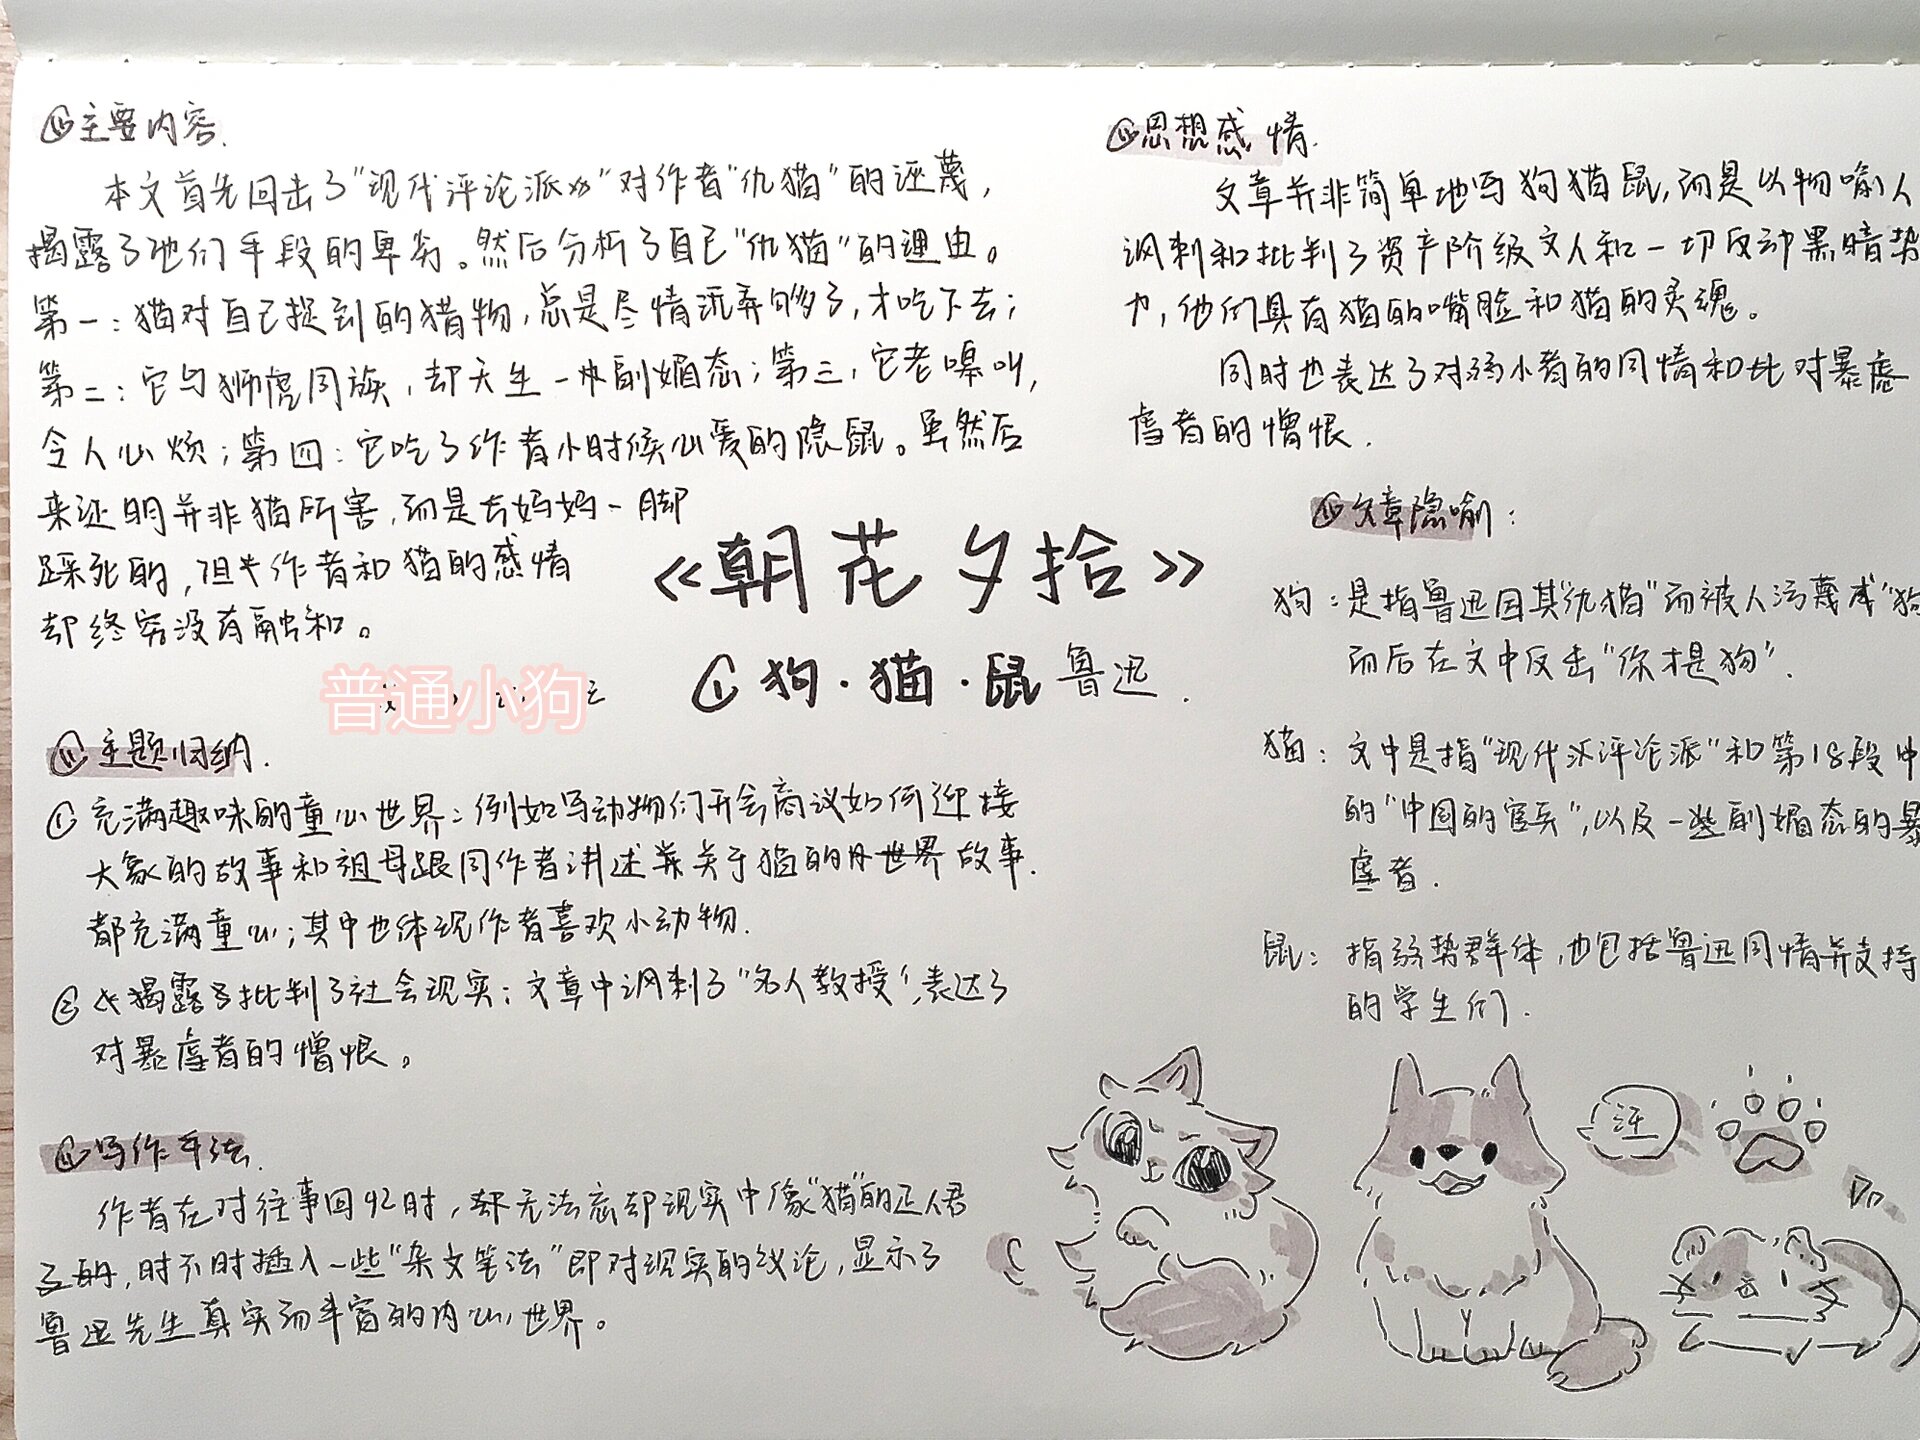 主要内容.
本文首先回击了"现代评论派"对作者"仇猫"的诬蔑，
揭露了他们手段的卑劣。然后分析了自己"仇猫"的理由。
第一：猫对自己捉到的猎物，总是尽情玩弄够了，才吃下去；
第二：它与狮虎同族，却天生一副媚态；第三，它老嗥叫，
令人心烦；第四：它吃了作者小时候心爱的隐鼠。虽然后
来证明并非猫所害，而是长妈妈一脚
踩死的，但作者和猫的感情
却终究没有融和。
《朝花夕拾》
① 狗·猫·鼠 鲁迅.
普通小狗
主题归纳.
① 充满趣味的童心世界：例如写动物们开会商议如何迎接
大象的故事和祖母跟同作者讲述关于猫的世界故事.
都充满童心；其中也体现作者喜欢小动物.
② 揭露了批判了社会现实：文章中讽刺了"名人教授"，表达了
对暴虐者的憎恨。
写作手法.
作者在对往事回忆时，却无法忘却现实中像"猫"的正人君
子的，时不时插入一些"杂文笔法"即对现实的议论，显示了
鲁迅先生真实而丰富的内心世界。
思想感情.
文章并非简单地写狗猫鼠，而是以物喻人
讽刺和批判了资产阶级文人和一切反动黑暗势
力，他们具有猫的嘴脸和猫的灵魂。
同时也表达了对弱小者的同情和对暴虐
虐者的憎恨.
文章隐喻：
狗：是指鲁迅因其"仇猫"而被人污蔑成"狗
而后在文中反击"你才是狗".
猫：文中是指"现代派评论派"和第18段中
的"中国的官兵"，以及一些副媚态的暴
虐者.
鼠：指弱势群体，也包括鲁迅同情并支持
的学生们.
汪